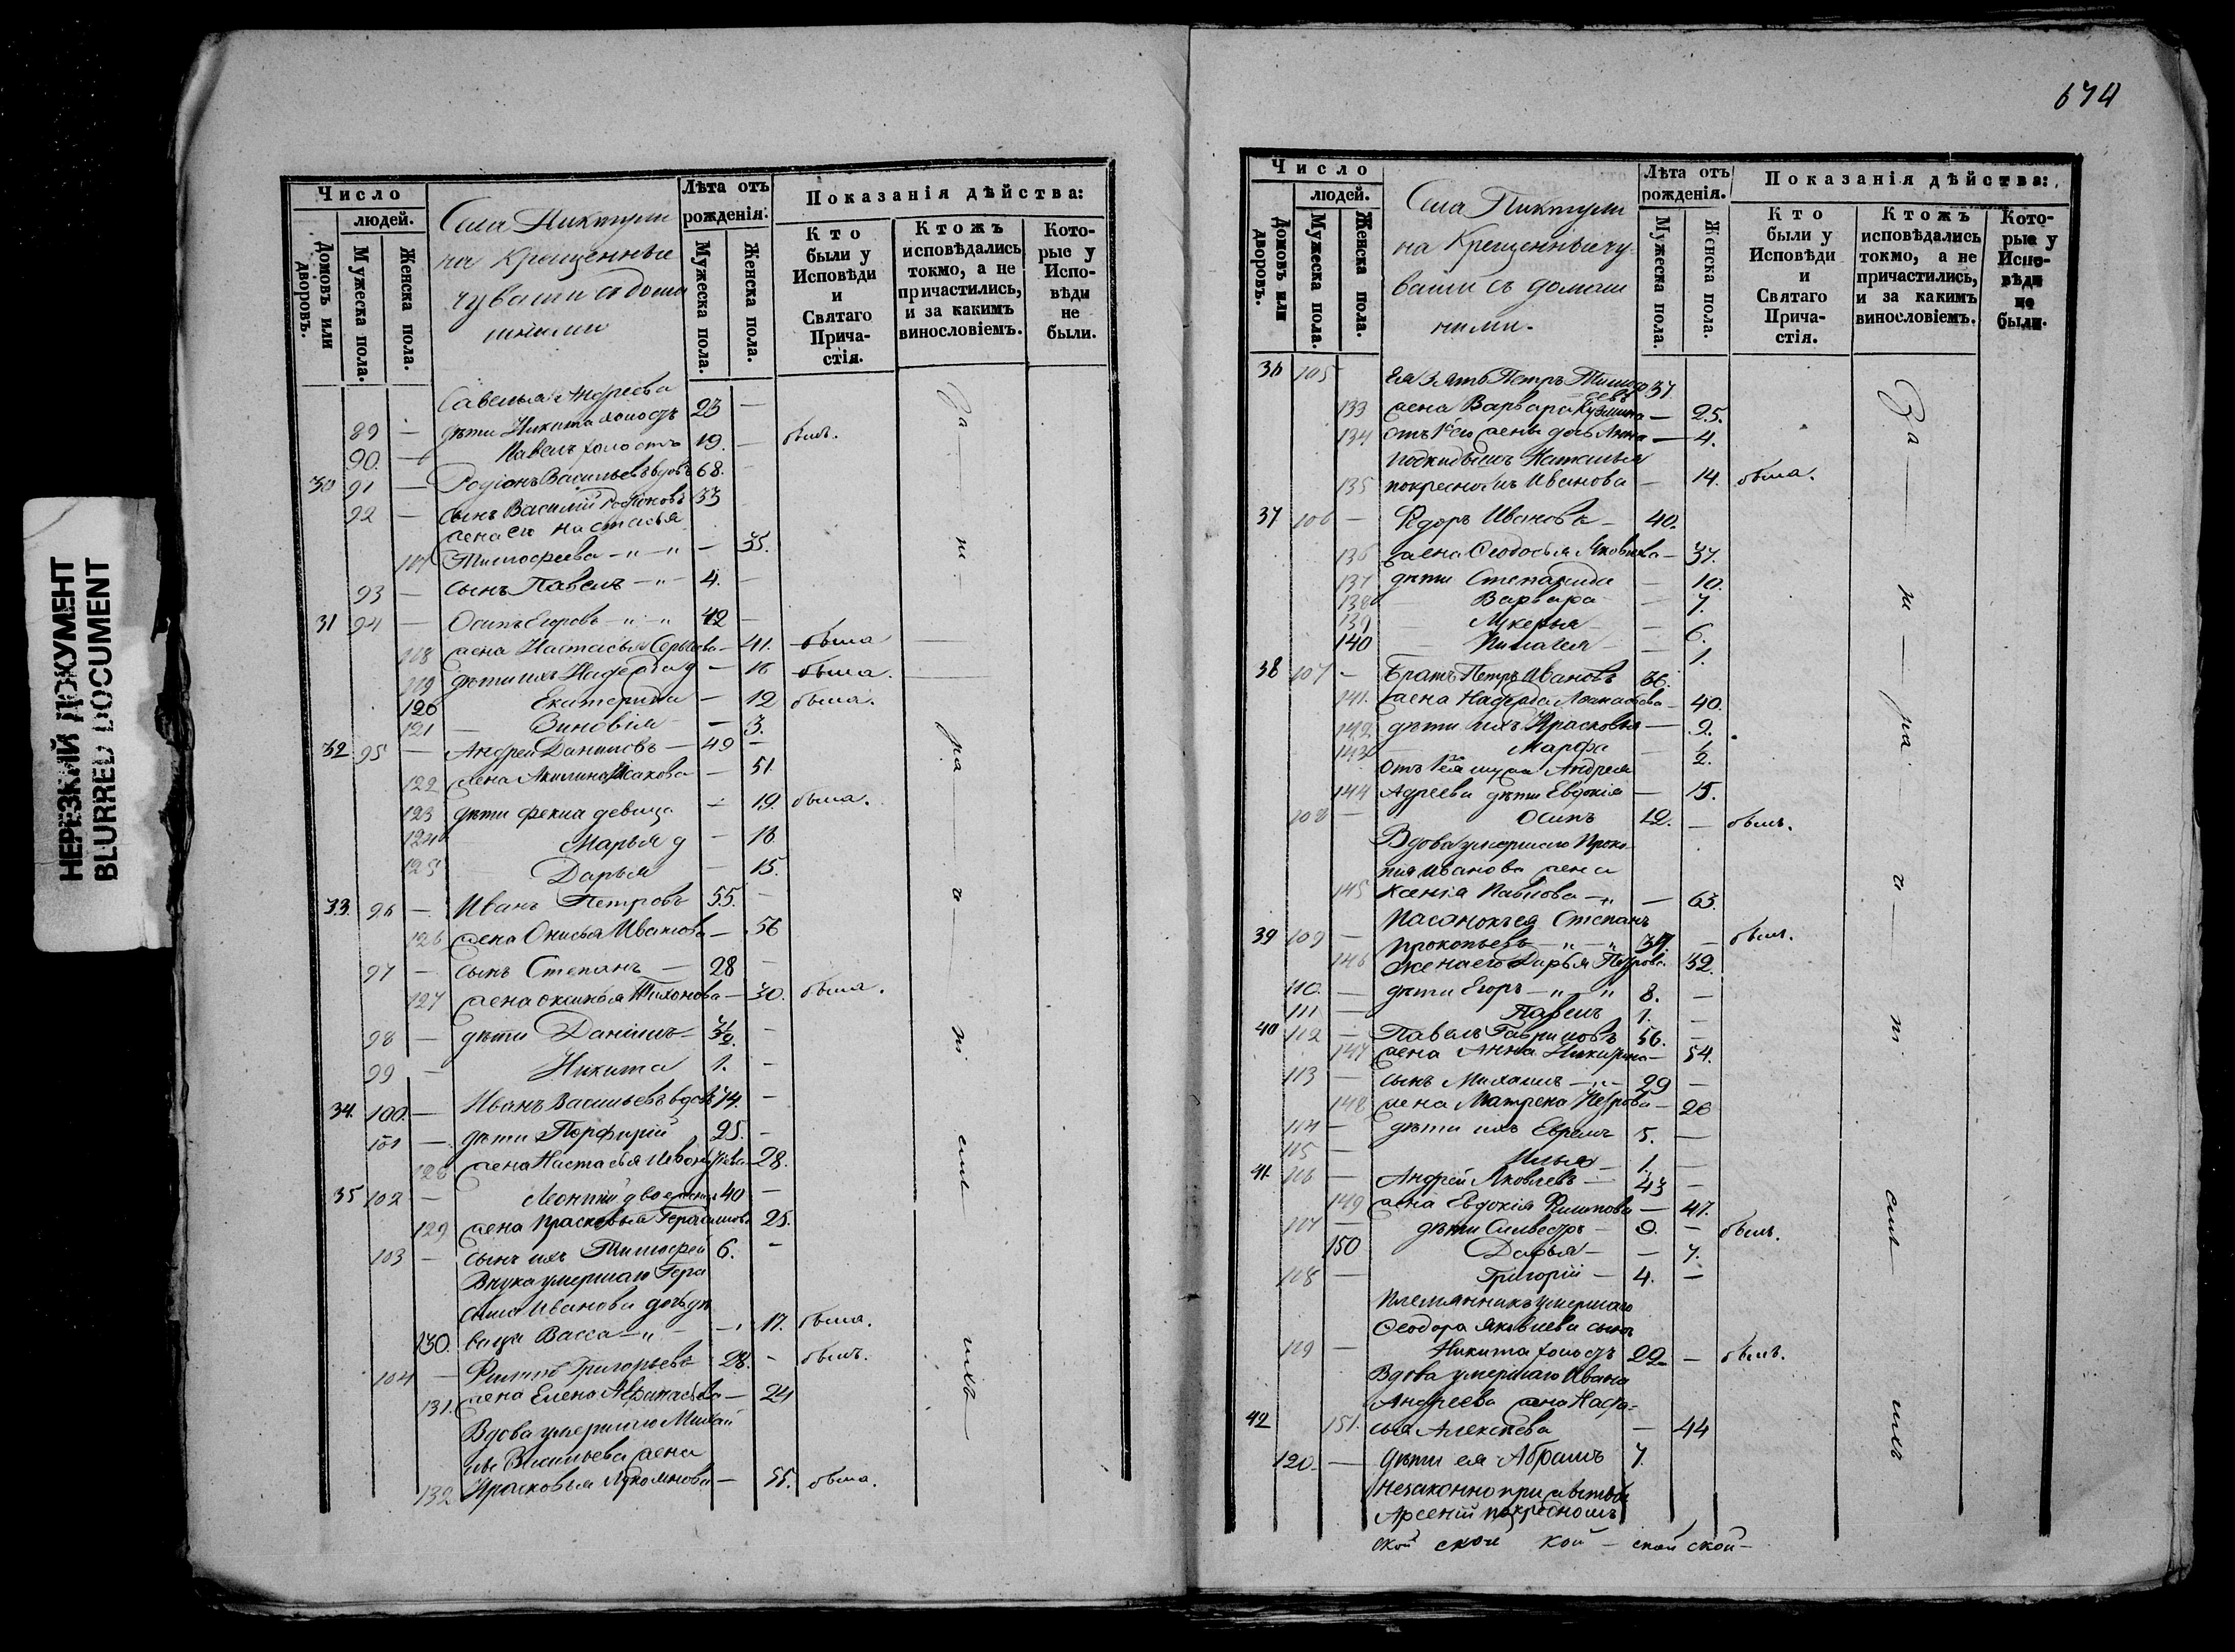 НЕРЕЗКИЙ ДОКУМЕНТ
BLURRED DOCUMENT
Число
людей.
Домовъ или дворовъ.
Мужеска пола.
Женска пола.
Села Пиктули
на Крещенные
чуваши съ дома
шними
Лѣта отъ рожденія:
Мужеска пола.
Женска пола.
Показанія дѣйства:
Кто были у Исповѣди и Святаго Прича-стія.
Ктожъ исповѣдались токмо, а не причастились, и за какимъ винословіемъ.
Кото-рые у Испо-вѣди не были.
Савелья Андреева
89 — дѣти Никита холостъ 23 —
90. — Павелъ холостъ 19. — былъ.
30 91 — Родіонъ Васильевъ вдовъ 68. —
92 — Сынъ Василій Родіоновъ 33
жена его Настасья
117 Тимофеева — " — " — 35.
93 — сынъ Павелъ — " — 4. —
31 94 — Осипъ Егоровъ — " — " 42 —
118 жена Настасья Сергѣева — 41. была
119 дѣти ихъ д — 16 была.
120 Екатерина — 12 была.
121 — Зиновія — 3.
32 95 — Андрей Даниловъ — 49 —
122 жена Акилина Исакова — 51.
123 дѣти Фекла девица — 19. была.
124 Марья д — 16
125 Дарья — 15.
33. 96 — Иванъ Петровъ 55. —
126 жена Онисья Иванова — 56
97 — сынъ Степанъ — 28 —
127 жена Оксинья Тихонова — 30. была.
98 — дѣти Данiилъ — 3½. —
99 — Никита 1. —
34. 100. — Иванъ Васильевъ вдовъ 74. —
101 — дѣти Порфирій 25. —
128 жена Настасья 28.
35 102 — Леонтій 40 —
129 жена Прасковья Герасимова 25.
103 — сынъ ихъ Тимофей 6. —
Внука умершаго Гера
сима Иванова дочь дѣ
130. вица Васса — " — — 17. была.
104 — Филипъ Григорьевъ 28. — былъ.
131. жена Елена — 24
Вдова умершаго Михай
ла Васильева жена
132 Прасковья — 55. была.
За — т — ра — в — т — сил — ихъ
674
Число
людей.
Домовъ или дворовъ.
Мужеска пола.
Женска пола.
Села Пиктули
на Крещенные чу
ваши съ домаш
ними.
Лѣта отъ рожденія.
Мужеска пола.
Женска пола.
Показанія дѣйства:
Кто были у Исповѣди и Святаго Прича-стія.
Ктожъ исповѣдались токмо, а не причастились, и за какимъ винословіемъ.
Кото-рые у Испо-вѣди не были.
36 105 Ея Зять Петръ Тимоѳ
еевъ 37.
133 жена Варвара Кузмина — 25.
134 отъ 1й его жены дочь Анна — 4.
Подкидышъ Наталья
135 покресному Иванова — 14. была.
37 106 — Ѳедоръ Ивановъ — 40.
136 жена Ѳеодосья Яковлева — 37.
137 дѣти Степанида — 10.
138 Варвара — 7.
139 Лукерья — 6.
140 — Пилагея — 1.
38 107 — Братъ Петръ Ивановъ 36.
141. жена 40.
142 дѣти ихъ Прасковья — 9.
143 — Марфа — ½.
отъ 1го ея мужа Андрея
144 Адреева дѣти Евдокія — 15.
108 — Осипъ 12. — былъ.
Вдова умершаго Проко
пія Иванова жена
145 Ксенія Павлова — " — 65.
Пасынокъ ея Степанъ
39 109 — Прокопьевъ — " — " 37. — былъ.
146 Жена его Дарья Петрова 32.
110. — дѣти Егоръ — " — " 8. —
111 — Павелъ 1. —
40 112 — Павелъ Гавриловъ 56. —
147 жена Анна — 54.
113 — сынъ Михаилъ — " — 29 —
148 жена Матрена Петрова — 26
114 — дѣти ихъ Ефремъ 5. —
115 — Илья — 1. —
41. 116 — Андрей Яковлевъ — 43 —
149 жена Евдокія Филипова — 47.
117 — дѣти Сильвестръ — 9. — былъ.
150 Дарья — — 7.
118 — Григорій — 4. —
Племянникъ умершаго
Ѳеодора Яковлева сынъ
119 — Никита холостъ 22 — былъ.
Вдова умершаго Ивана
Андреева жена Наста-
42 151. сья Алексѣева — 44
120. — Дѣти ея Абрамъ 7.
Незаконно прижитый
Арсеній покресному
ской ской кой — ской ской —
За — т — ра — в — т — сил — ихъ